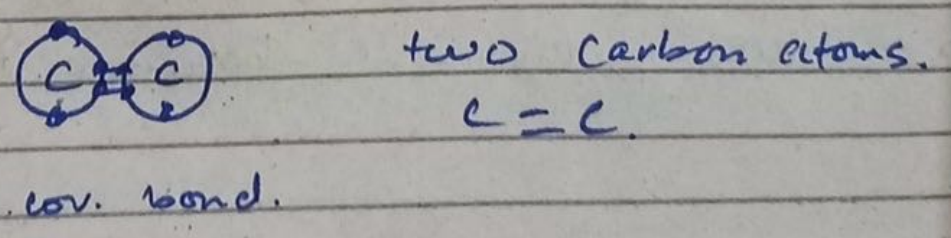 C C two Carbon atoms.
C = C.
. cov. bond.